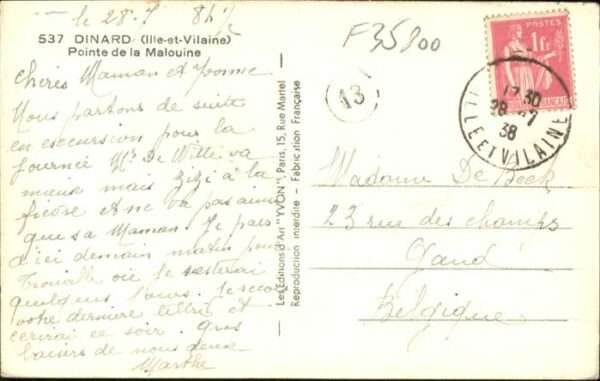 le 28.7 8h½
537 DINARD (Ille-et-Vilaine)
Pointe de la Malouine
Chères Maman et Yvonne
Nous partons de suite
en excursion pour la
journée Mr De Witte va
mieux mais zizi à la
fièvre et ne va pas ainsi
que sa Maman. Je pars
d'ici demain matin pour
Trouville où je resterai
quelques jours. Je
votre dernière lettre et
écrirai ce soir. Gros
baisers de nous deux
Marthe
Les Editions d'Art "YVON", Paris, 15, Rue Martel
Reproduction interdite - Fabrication Française
F35800
13
POSTES
1F
17 30
28 -7
38
ILLE ET VILAINE
Madame De Bock
23 rue des champs
Gand
Belgique